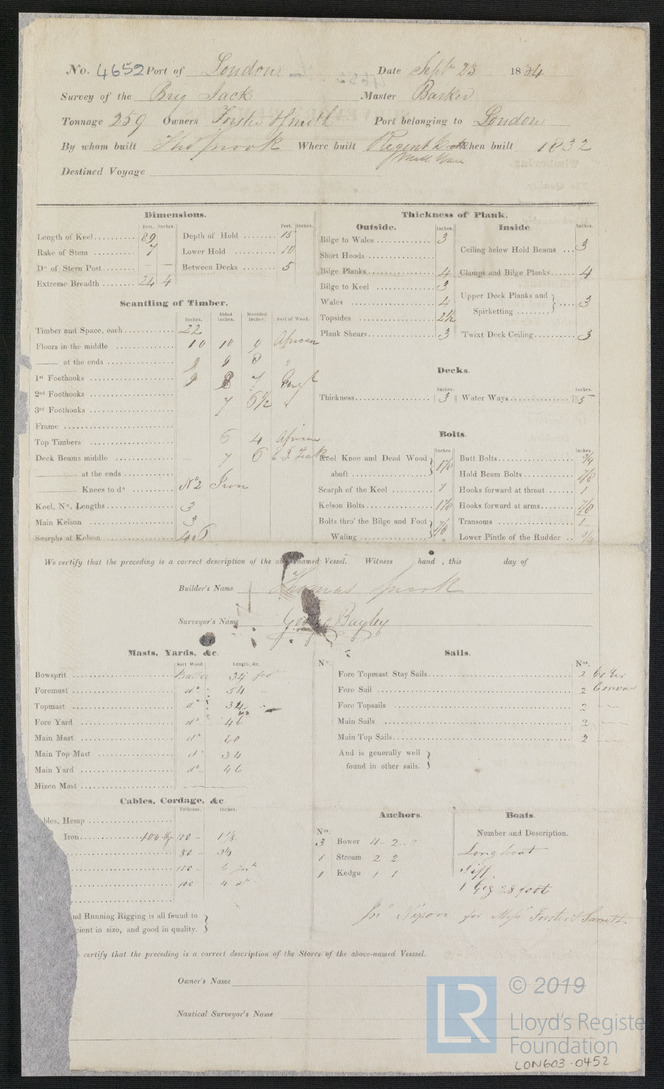 No. 4652 Port of London Date Sept 23 1834
Survey of the Brig Jack Master Barker
Tonnage 259 Owners Forster & Smith Port belonging to London
By whom built Thos Snook Where built Regent Dock When built 1832
Mill Wall
Destined Voyage
Dimensions.
Feet. Inches. Feet. Inches.
Length of Keel 89 Depth of Hold 15
Rake of Stem 7 Lower Hold 10
Do of Stern Post Between Decks 5
Extreme Breadth 24 4
Thickness of Plank.
Outside. Inches. Inside Inches.
Bilge to Wales 3 Ceiling below Hold Beams 3
Short Hoods
Bilge Planks 4 Clamps and Bilge Planks 4
Bilge to Keel 3
Wales 4 Upper Deck Planks and Spirketting 3
Topsides 2½
Plank Shears 3 Twixt Deck Ceiling 3
Scantling of Timber.
Inches. Sided Inches. Moulded Inches. Sort of Wood.
Timber and Space, each 22
Floors in the middle 10 10 9 African
at the ends 9 8
1st Foothooks 9 8 7 Engl
2nd Foothooks
3rd Foothooks 7 6½
Frame
Top Timbers 6 4 African
Deck Beams middle 7 6 E I Teak
at the ends
Knees to do No 2 Iron
Keel, No. Lengths 3
Main Kelson 3
Scarphs at Kelson 4.6
Decks.
Inches. Inches.
Thickness 3 Water Ways 5
Bolts.
Inches Inches.
Keel Knee and Dead Wood abaft 1⅛ Butt Bolts ¾
Hold Beam Bolts ⅞
Scarph of the Keel Hooks forward at throat 1
Kelson Bolts 1⅛ Hooks forward at arms ⅞
Bolts thro' the Bilge and Foot Waling ⅞ Transoms 1
Lower Pintle of the Rudder
We certify that the preceding is a correct description of the above-named Vessel. Witness hand, this day of
Builder's Name Thomas Snook
Surveyor's Name George Bayley
Masts, Yards, &c.
Sort Wood. Length, &c.
Bowsprit 34
Foremast do 54
Topmast do 34
Fore Yard do 46
Main Mast do 60
Main Top Mast do 34
Main Yard do 46
Mizen Mast
Sails.
No. No.
Fore Topmast Stay Sails 2
Fore Sail 2 Canvas
Fore Topsails 2
Main Sails 2
Main Top Sails 2
And is generally well found in other sails.
Cables, Cordage, &c
Fathoms. Inches.
bles, Hemp
Iron 100
80
100
100
nd Running Rigging is all found to
cient in size, and good in quality.
Anchors.
No.
3 Bower
1 Stream 2 2
1 Kedge 1 1
Boats
Number and Description.
Long boat
Skiff
1 Gig 28 foot
Jno Nixon for Messrs Forster & Smith
certify that the preceding is a correct description of the Stores of the above-named Vessel.
Owner's Name
Nautical Surveyor's Name
LR
© 2019
Lloyd's Registe
Foundation
LON603-0452